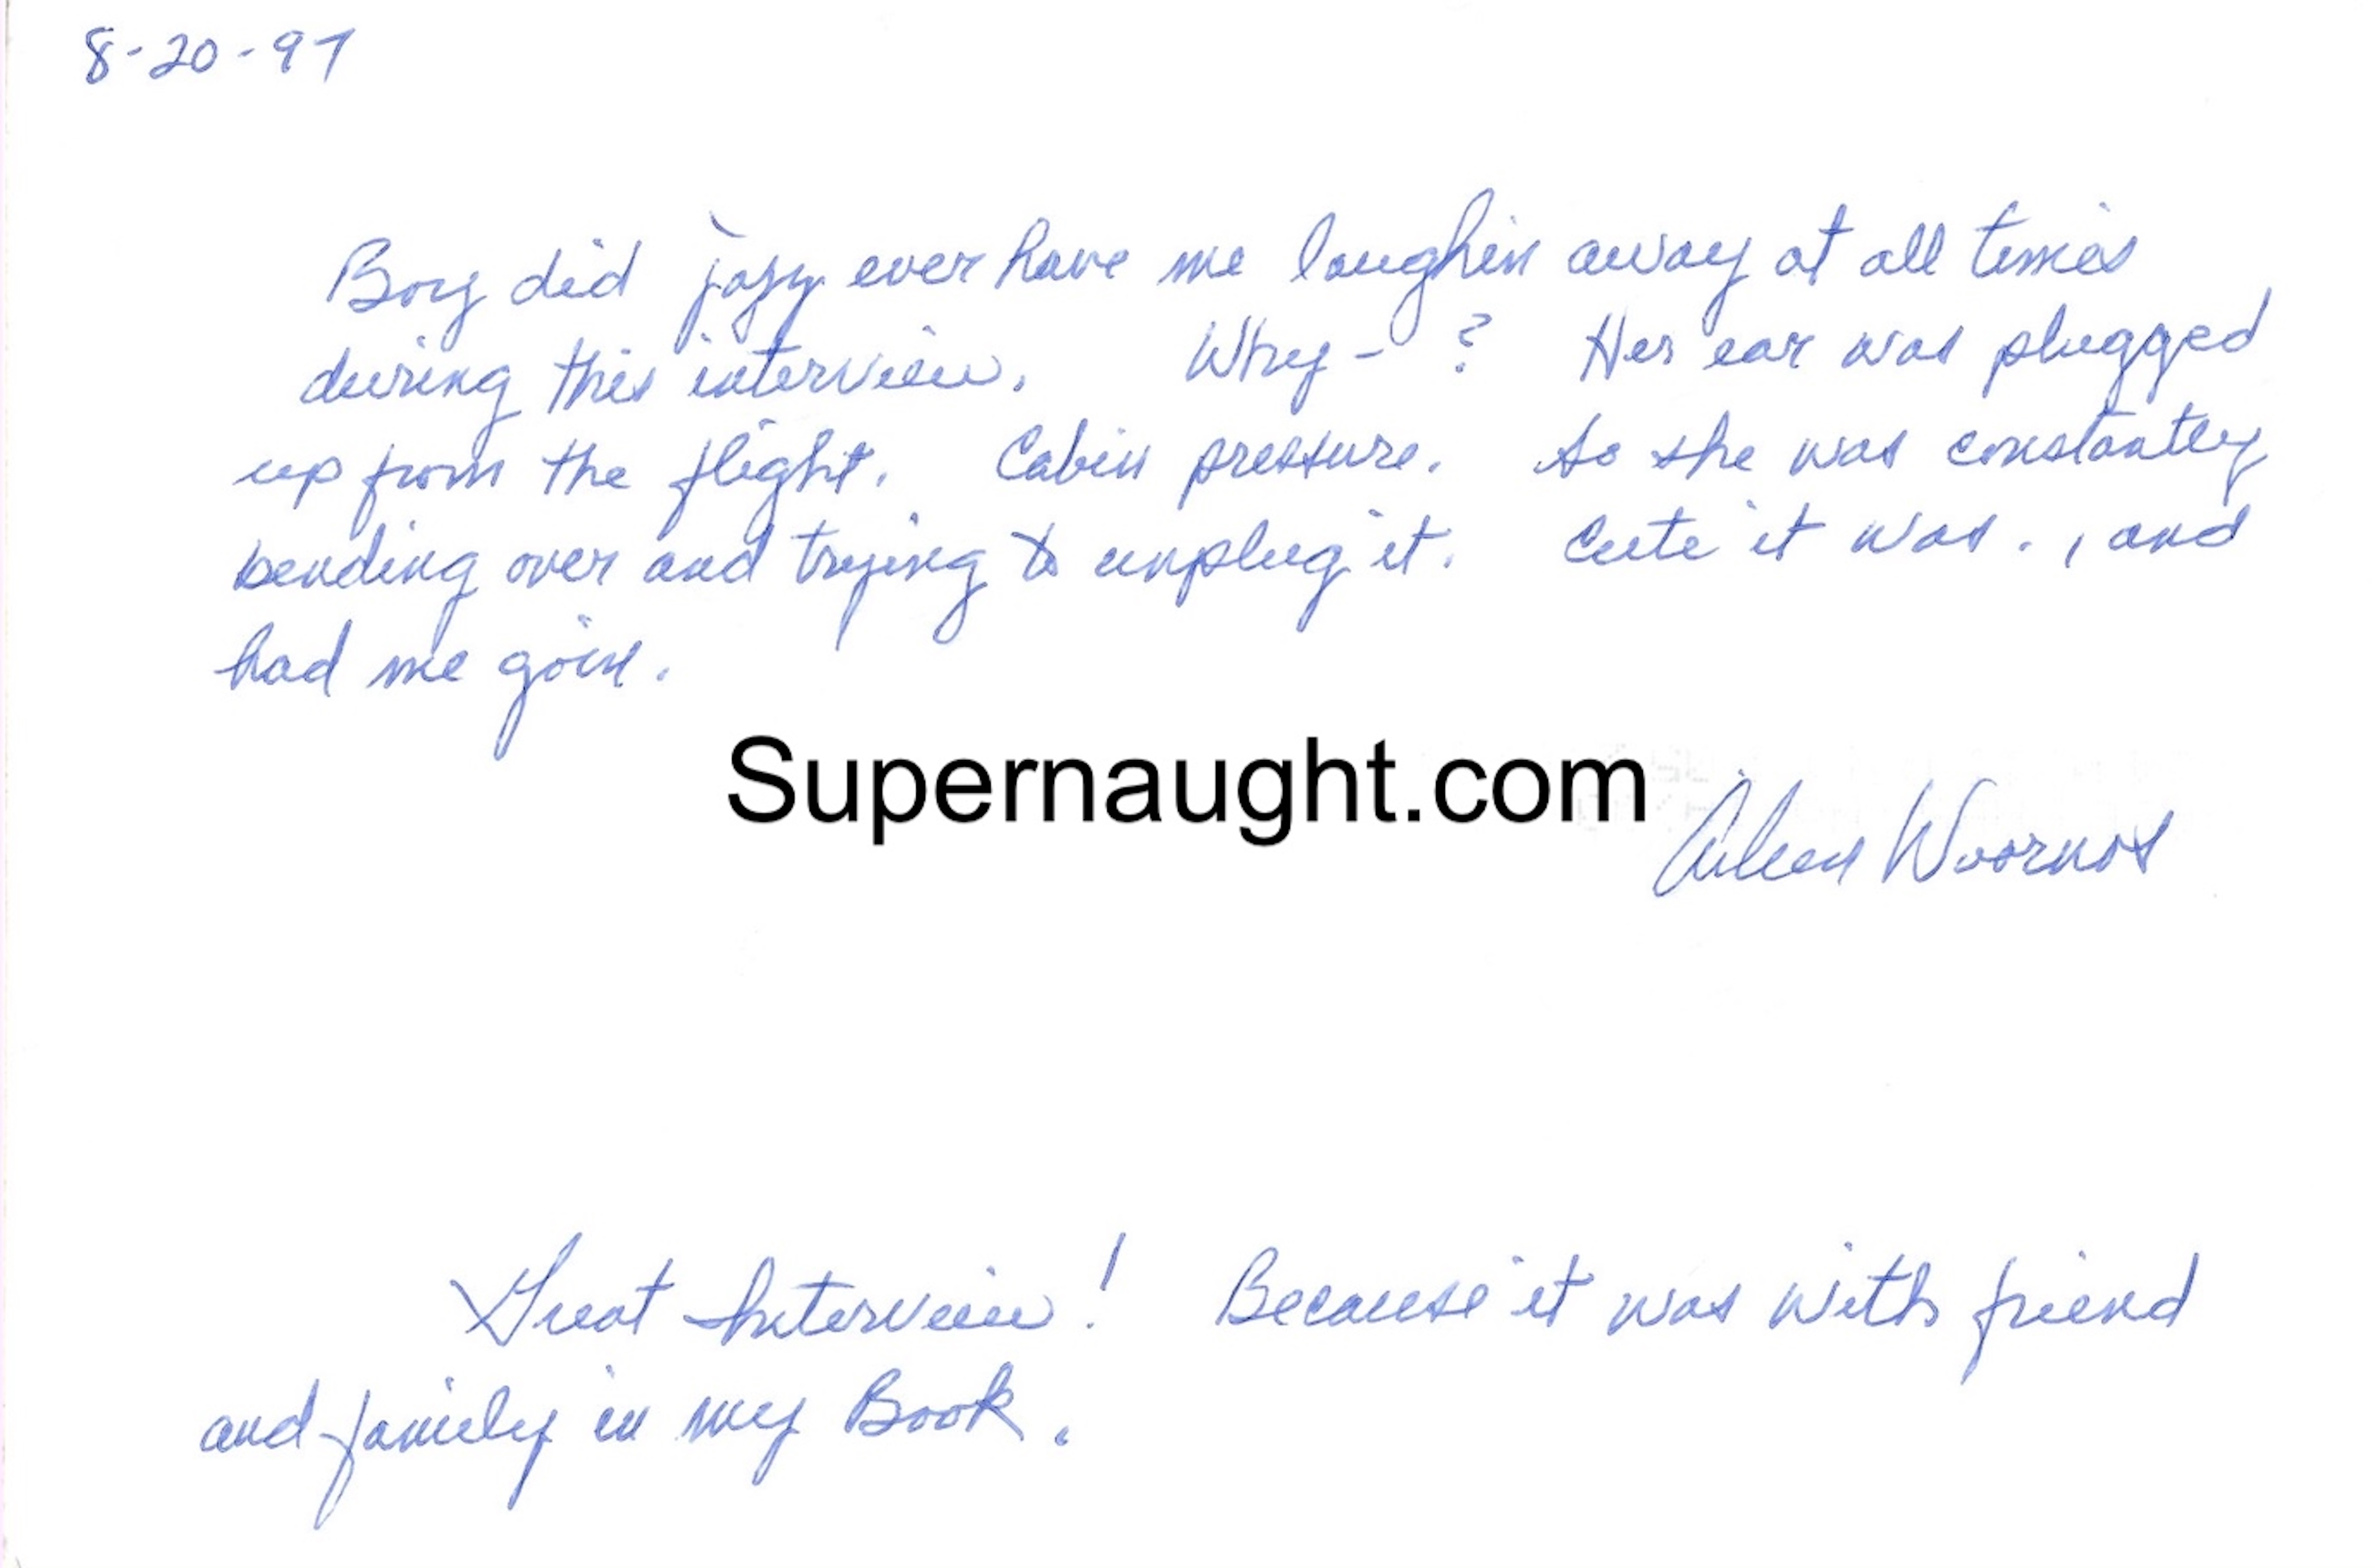 8-20-97
Boy did jazzy ever have me laughin away at all times
during this interview. Why-? Her ear was plugged
up from the flight. Cabin pressure. So she was constantly
bending over and trying to unplug it. Cute it was. , and
had me goin.
Supernaught.com
Aileen Wuornos
Great Interview! Because it was with friend
and family in my Book.